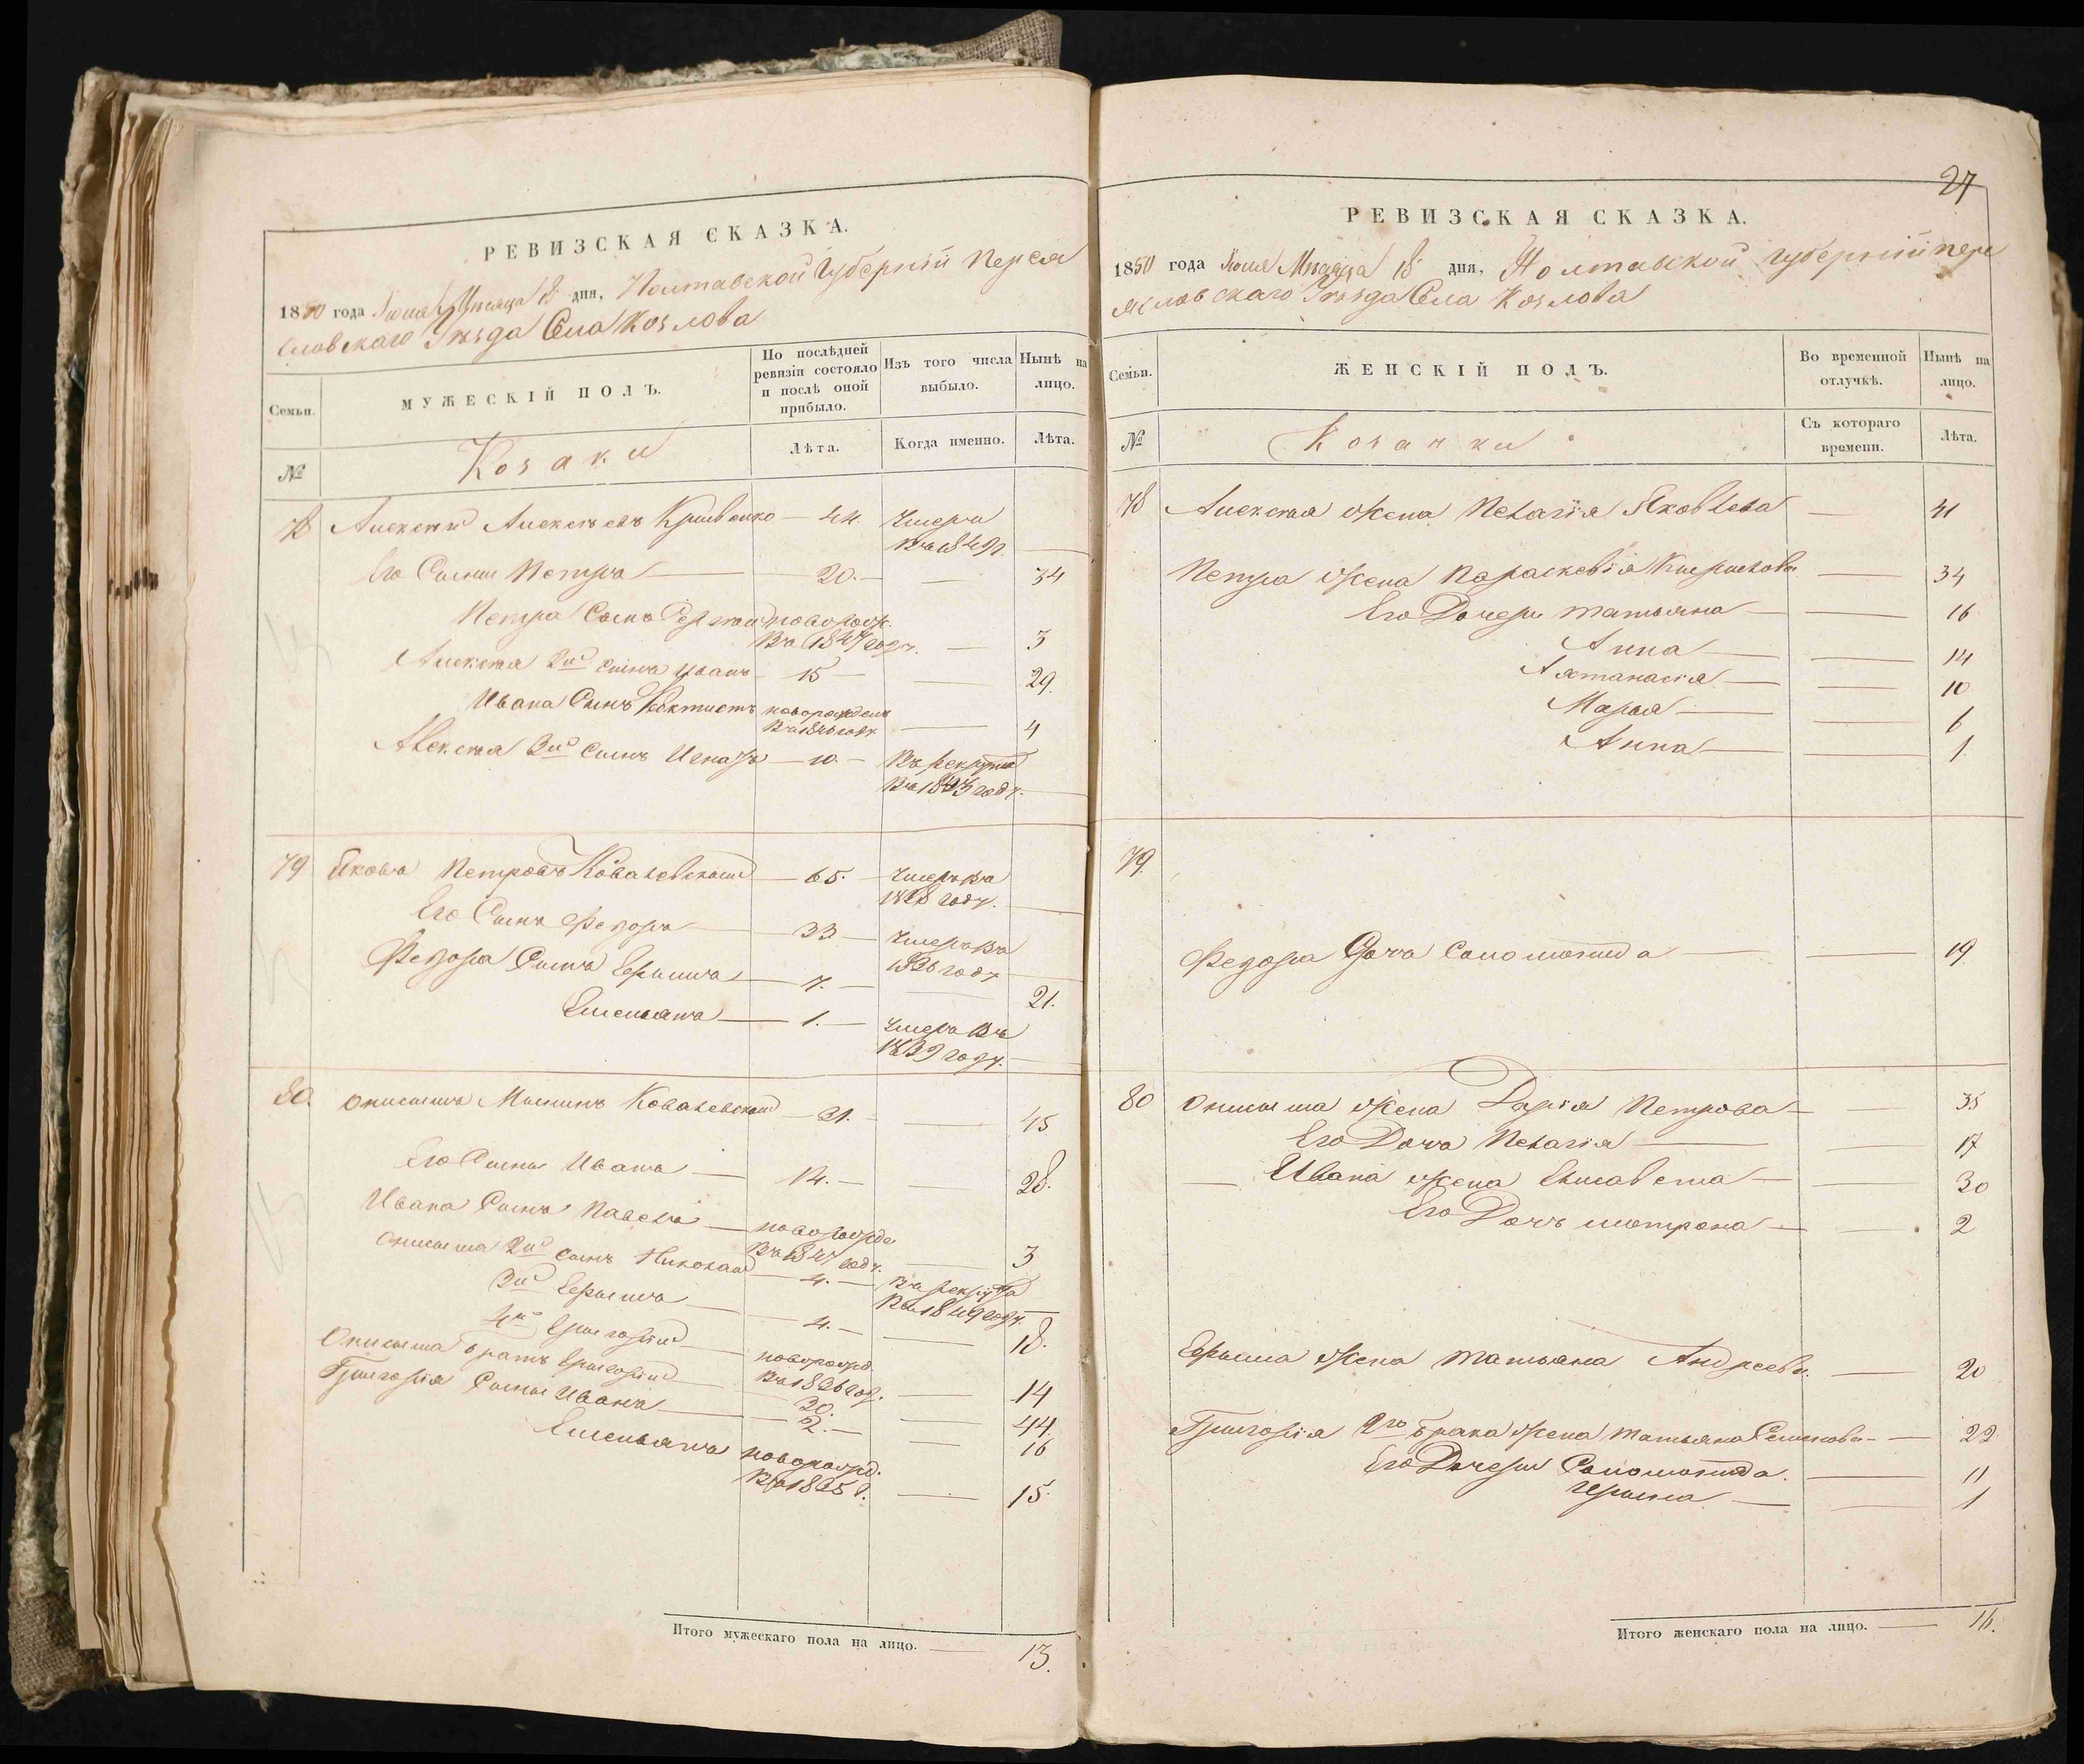 РЕВИЗСКАЯ СКАЗКА.
1850 года Июня Мѣсяца 18 дня, Полтавской Губерніи Перея
славскаго Уѣзда Села Козлова
Семьи.
МУЖЕСКІЙ ПОЛЪ.
По послѣдней ревизіи состояло и послѣ оной прибыло.
Изъ того числа выбыло.
Нынѣ на лицо.
№
Козаки
Лѣта.
Когда именно.
Лѣта.
78 Алексѣй Алексѣевъ Кривенко 44. Умеръ
въ 1849г.
Его Сыны Петръ 20. 34
Петра Сынъ Сергѣй новорож.
въ 1847 году. 3
Алексѣя 2й сынъ Иванъ 15 29.
Ивана Сынъ новорожденъ
въ 1846 году 4
Алексѣя 3й Сынъ Игнатъ 10. Въ рекруты
въ году.
79 Яковъ Петровъ Ковалевскій 65. Умеръ въ
году.
Его Сынъ Федоръ 33 Умеръ въ
1836 году
Федора Сынъ Ефимъ 7. 21.
Емельянъ 1. Умеръ въ
1839 году.
80. Онисимъ Мининъ Ковалевскій 31. 45
Его Сыны Иванъ 14. 28.
Ивана Сынъ Павелъ новорожд.
въ 1847 году. 3
Онисима 2й сынъ Николай 4. въ рекруты
въ 1849 году.
3й Ефимъ 4. 18.
4й Григорій новорожд.
въ 1836 год. 14
Онисима братъ Григорій 30. 44.
Григорія Сыны Иванъ 2. 16
Емельянъ новорожд.
въ 1835 г. 15
Итого мужескаго пола на лицо. 13.
27
РЕВИЗСКАЯ СКАЗКА.
1850 года Июня Мѣсяца 18 дня, Полтавской Губерніи Пере
яславскаго Уѣзда Села Козлова
Семьи.
ЖЕНСКІЙ ПОЛЪ.
Во временной отлучкѣ.
Нынѣ на лицо.
№
Козачки
Съ котораго времени.
Лѣта.
78 Алексѣя жена Пелагія Яковлева 41
Петра жена Параскевія Кирилова 34
Его Дочери Татьяна 16
Анна 14
Анастасія 10
Марья 6
Анна 1.
79.
Федора Дочь Соломонида 19
80 Онисима жена Дарія Петрова 35
Его Дочь Пелагія 17
Ивана жена Елисавета 30
Его Дочь Мотрона 2
Ефима жена Татьяна Андреева. 20
Григорія 2го брака жена Татьяна Семенова 22
Его Дочери Соломонида. 11
Ирина 1
Итого женскаго пола на лицо. 16.